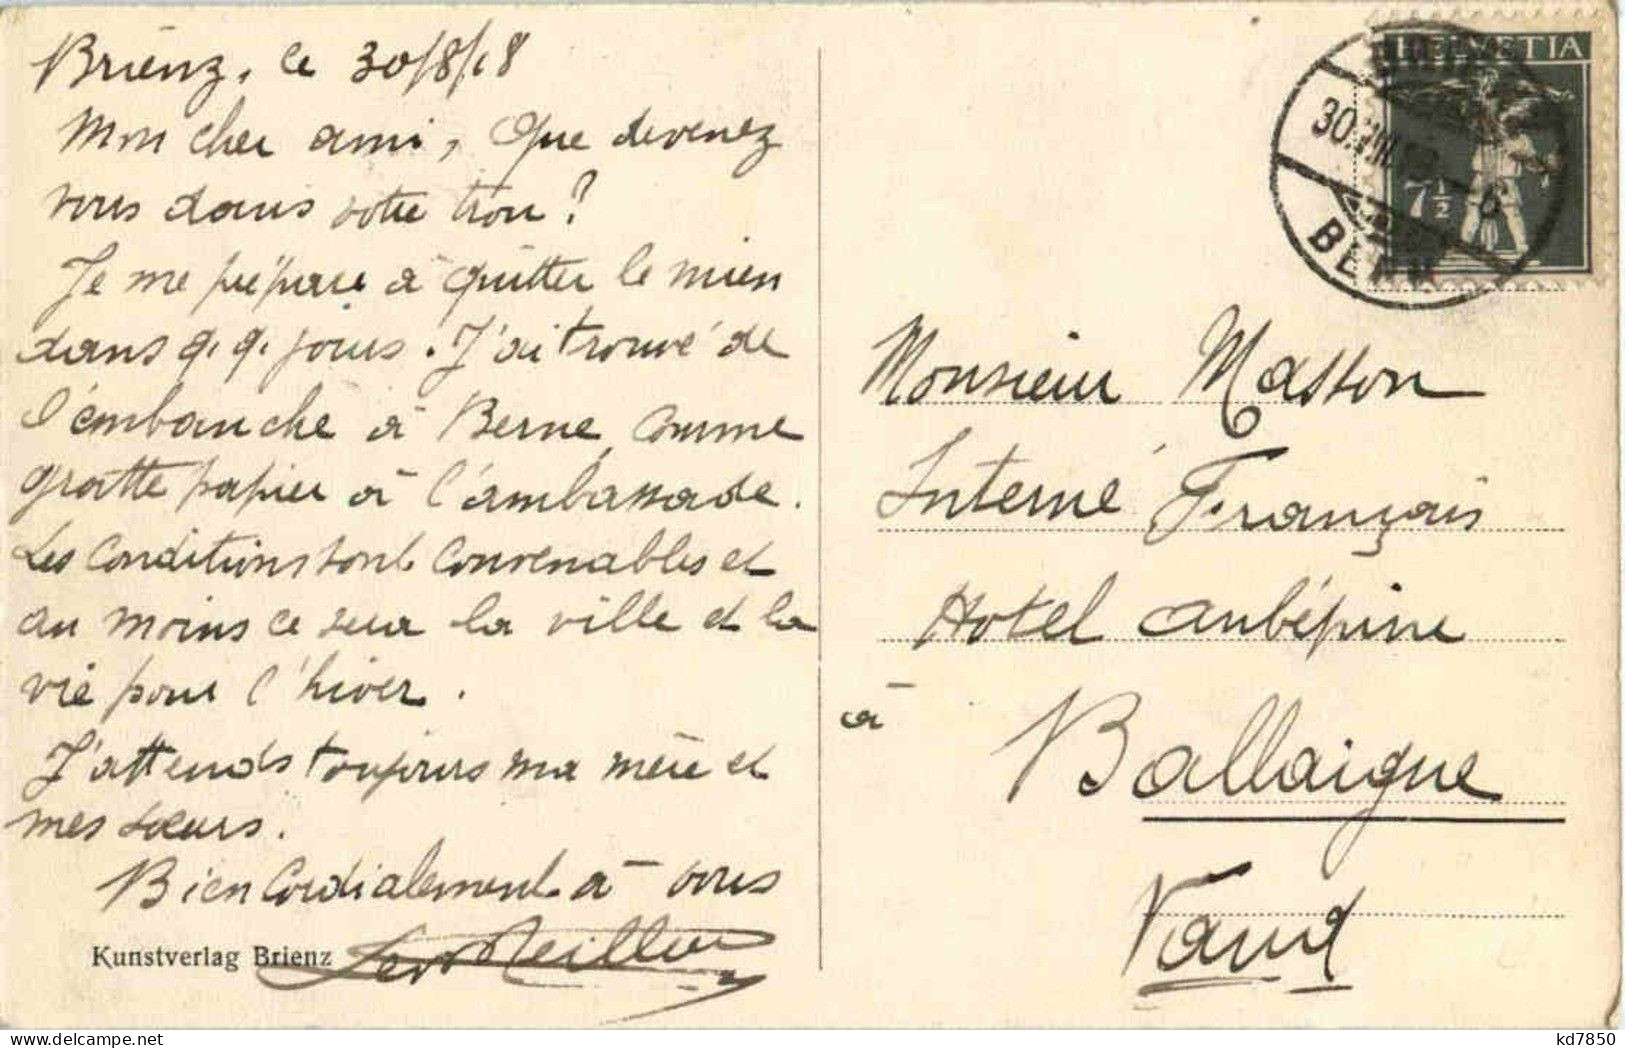 Brienz, le 30/8/18
Mon cher ami, Que devenez
vous dans votre trou?
Je me prépare à quitter le mien
dans q.q. jours. J'ai trouvé de
l'embauche à Berne, comme
gratte papier à l'ambassade.
Les Conditions sont Convenables et
au moins ce sera la ville et la
vie pour l'hiver.
J'attends toujours ma mère et
mes sœurs.
Bien Cordialement à vous
Kunstverlag Brienz
HELVETIA
7½
30.VIII.18
BERN
Monsieur Masson
Interné Français
Hotel Aubépine
à Ballaigue
Vaud
kd7850